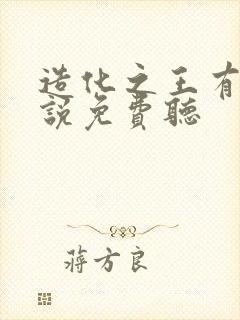 造化之王有
說免費聽
蔣方良